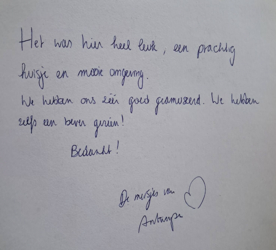 Het was hier heel leuk, een prachtig
huisje en mooie omgeving.
We hebben ons zéér goed geamuseerd. We hebben
zelfs een bever gezien!
Bedankt!
De meisjes van
Antwerpen